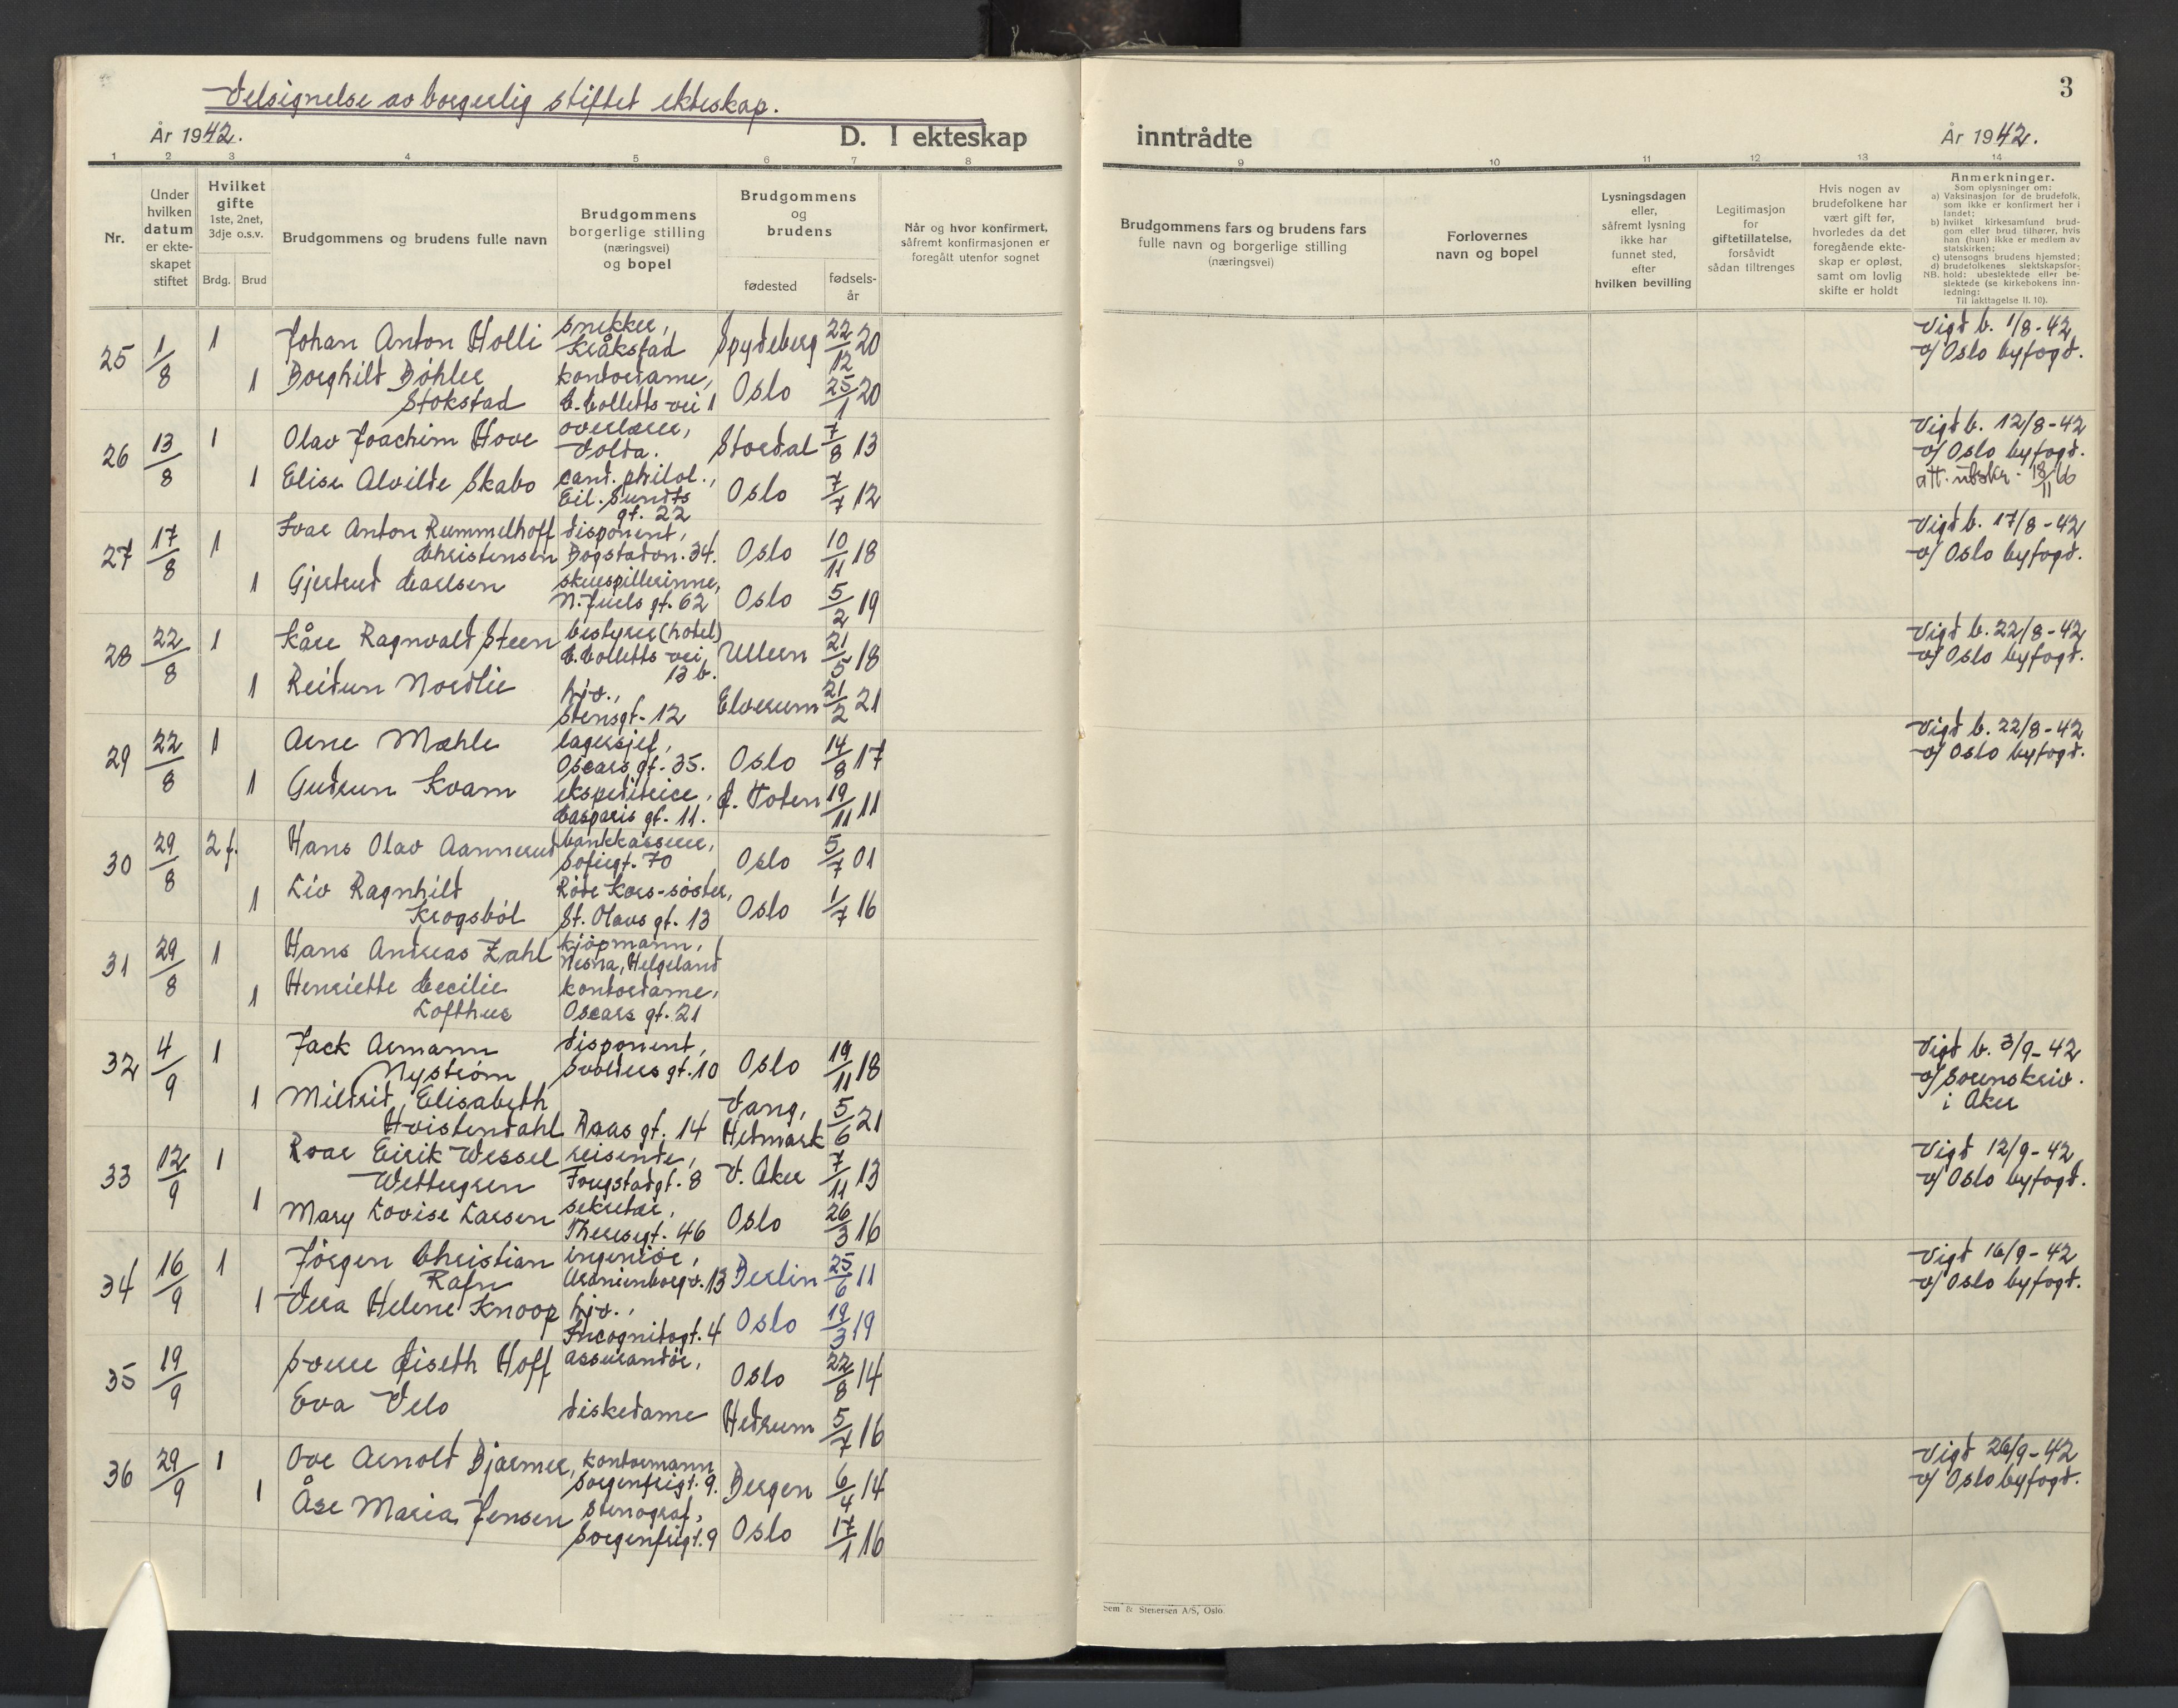 Velsignelse av borgerlig stiftet ekteskap.
År 1942.
D. I ekteskap
inntrådte
År 1942.
3
1 2 3 4 5 6 7 8 9 10 11 12 13 14
Nr.
Under hvilken datum er ekteskapet stiftet
Hvilket gifte
1ste, 2net, 3dje o.s.v.
Brdg. Brud
Brudgommens og brudens fulle navn
Brudgommens borgerlige stilling (næringsvei) og bopel
Brudgommens og brudens
fødested
fødsels-år
Når og hvor konfirmert, såfremt konfirmasjonen er foregått utenfor sognet
Brudgommens fars og brudens fars fulle navn og borgerlige stilling (næringsvei)
Forlovernes navn og bopel
Lysningsdagen eller, såfremt lysning ikke har funnet sted, efter hvilken bevilling
Legitimasjon for giftetillatelse, forsåvidt sådan tiltrenges
Hvis nogen av brudefolkene har vært gift før, hvorledes da det foregående ekteskap er opløst, samt om lovlig skifte er holdt
Anmerkninger.
Som oplysninger om:
a) Vaksinasjon for de brudefolk, som ikke er konfirmert her i landet;
b) hvilket kirkesamfund brudgom eller brud tilhører, hvis han (hun) ikke er medlem av statskirken;
c) utensogns brudens hjemsted;
d) brudefolkenes slektskapsforhold: ubeslektede eller beslektede (se kirkebokens innledning:
NB.
Til iakttagelse II. 10).
25 1/8 1 Johan Anton Holli snekker, Kråkstad Spydeberg 22/12 20 Vigd b. 1/8-42 v/ Oslo byfogd.
1 Borghild Bøhler Stokstad kontordame, C. Colletts vei 1 Oslo 25/1 20
26 13/8 1 Olav Joachim Hove overlærer, Volda. Stordal 7/8 13 Vigd b. 12/8-42 v/ Oslo byfogd.
att. utskr. 18/11 66
1 Elise Alvilde Skabo cand. philol., Eil. Sundts gt. 22 Oslo 7/7 12
27 17/8 1 Ivar Anton Rummelhoff Christensen disponent, Bogstadvn. 34. Oslo 10/11 18 Vigd b. 17/8-42 v/ Oslo byfogd.
1 Gjertrud Carlsen skuespillerinne, N. Juels gt. 62 Oslo 5/2 19
28 22/8 1 Kåre Ragnvald Steen bestyrer (hotel) C. Colletts vei 13 b. Ulleren 21/5 18 Vigd b. 22/8-42 v/ Oslo byfogd.
1 Reidun Nordlie hjv., Stensgt. 12 Elverum 21/2 21
29 22/8 1 Arne Mæhle lagersjef, Oscars gt. 35. Oslo 14/8 17 Vigd b. 22/8-42 v/ Oslo byfogd.
1 Gudrun Kvam ekspeditrice, Casparis gt. 11. Ø. Toten 19/11 11
30 29/8 2 f. Hans Olav Aannerud bankkasserer, Sofiegt. 70 Oslo 5/7 01
1 Liv Ragnhild Krogsbøl Røde Kors-søster, St. Olavs gt. 13 Oslo 1/7 16
31 29/8 1 Hans Andreas Zahl kjøpmann, Nesna, Helgeland
1 Henriette Cecilie Lofthus kontordame, Oscars gt. 21
32 4/9 1 Jack Armann Nystrøm disponent, Svolders gt. 10 Oslo 19/11 18 Vigd b. 3/9-42 v/ Sorenskriv. i Aker
1 Mildrid Elisabeth Hvistendahl Raas gt. 14 Vang, Hedmark 5/6 21
33 12/9 1 Roar Eirik Wessel Wettergren reisende, Fougstadgt. 8 V. Aker 7/11 13 Vigd 12/9-42 v/ Oslo byfogd.
1 Mary Lovise Larsen sekretær, Theresgt. 46 Oslo 26/3 16
34 16/9 1 Jörgen Christian Rafn ingeniör, Uranienborgv. 13 Berlin 25/6 11 Vigd 16/9-42 v/ Oslo byfogd.
1 Vera Helene Knoop hjv., Incognitogt. 4 Oslo 19/3 19
35 19/9 Sverre Øiseth Hoff assurandör, Oslo 22/8 14
Eva Velo diskedame Hedrum 5/7 16
36 29/9 1 Ove Arnold Bjarmer, kontormann Sorgenfrigt. 9. Bergen 6/4 14 Vigd 26/9-42 v/ Oslo byfogd.
1 Åse Maria Jensen stenograf, Sorgenfrigt. 9 Oslo 17/1 16
Sem & Stenersen A/S, Oslo.